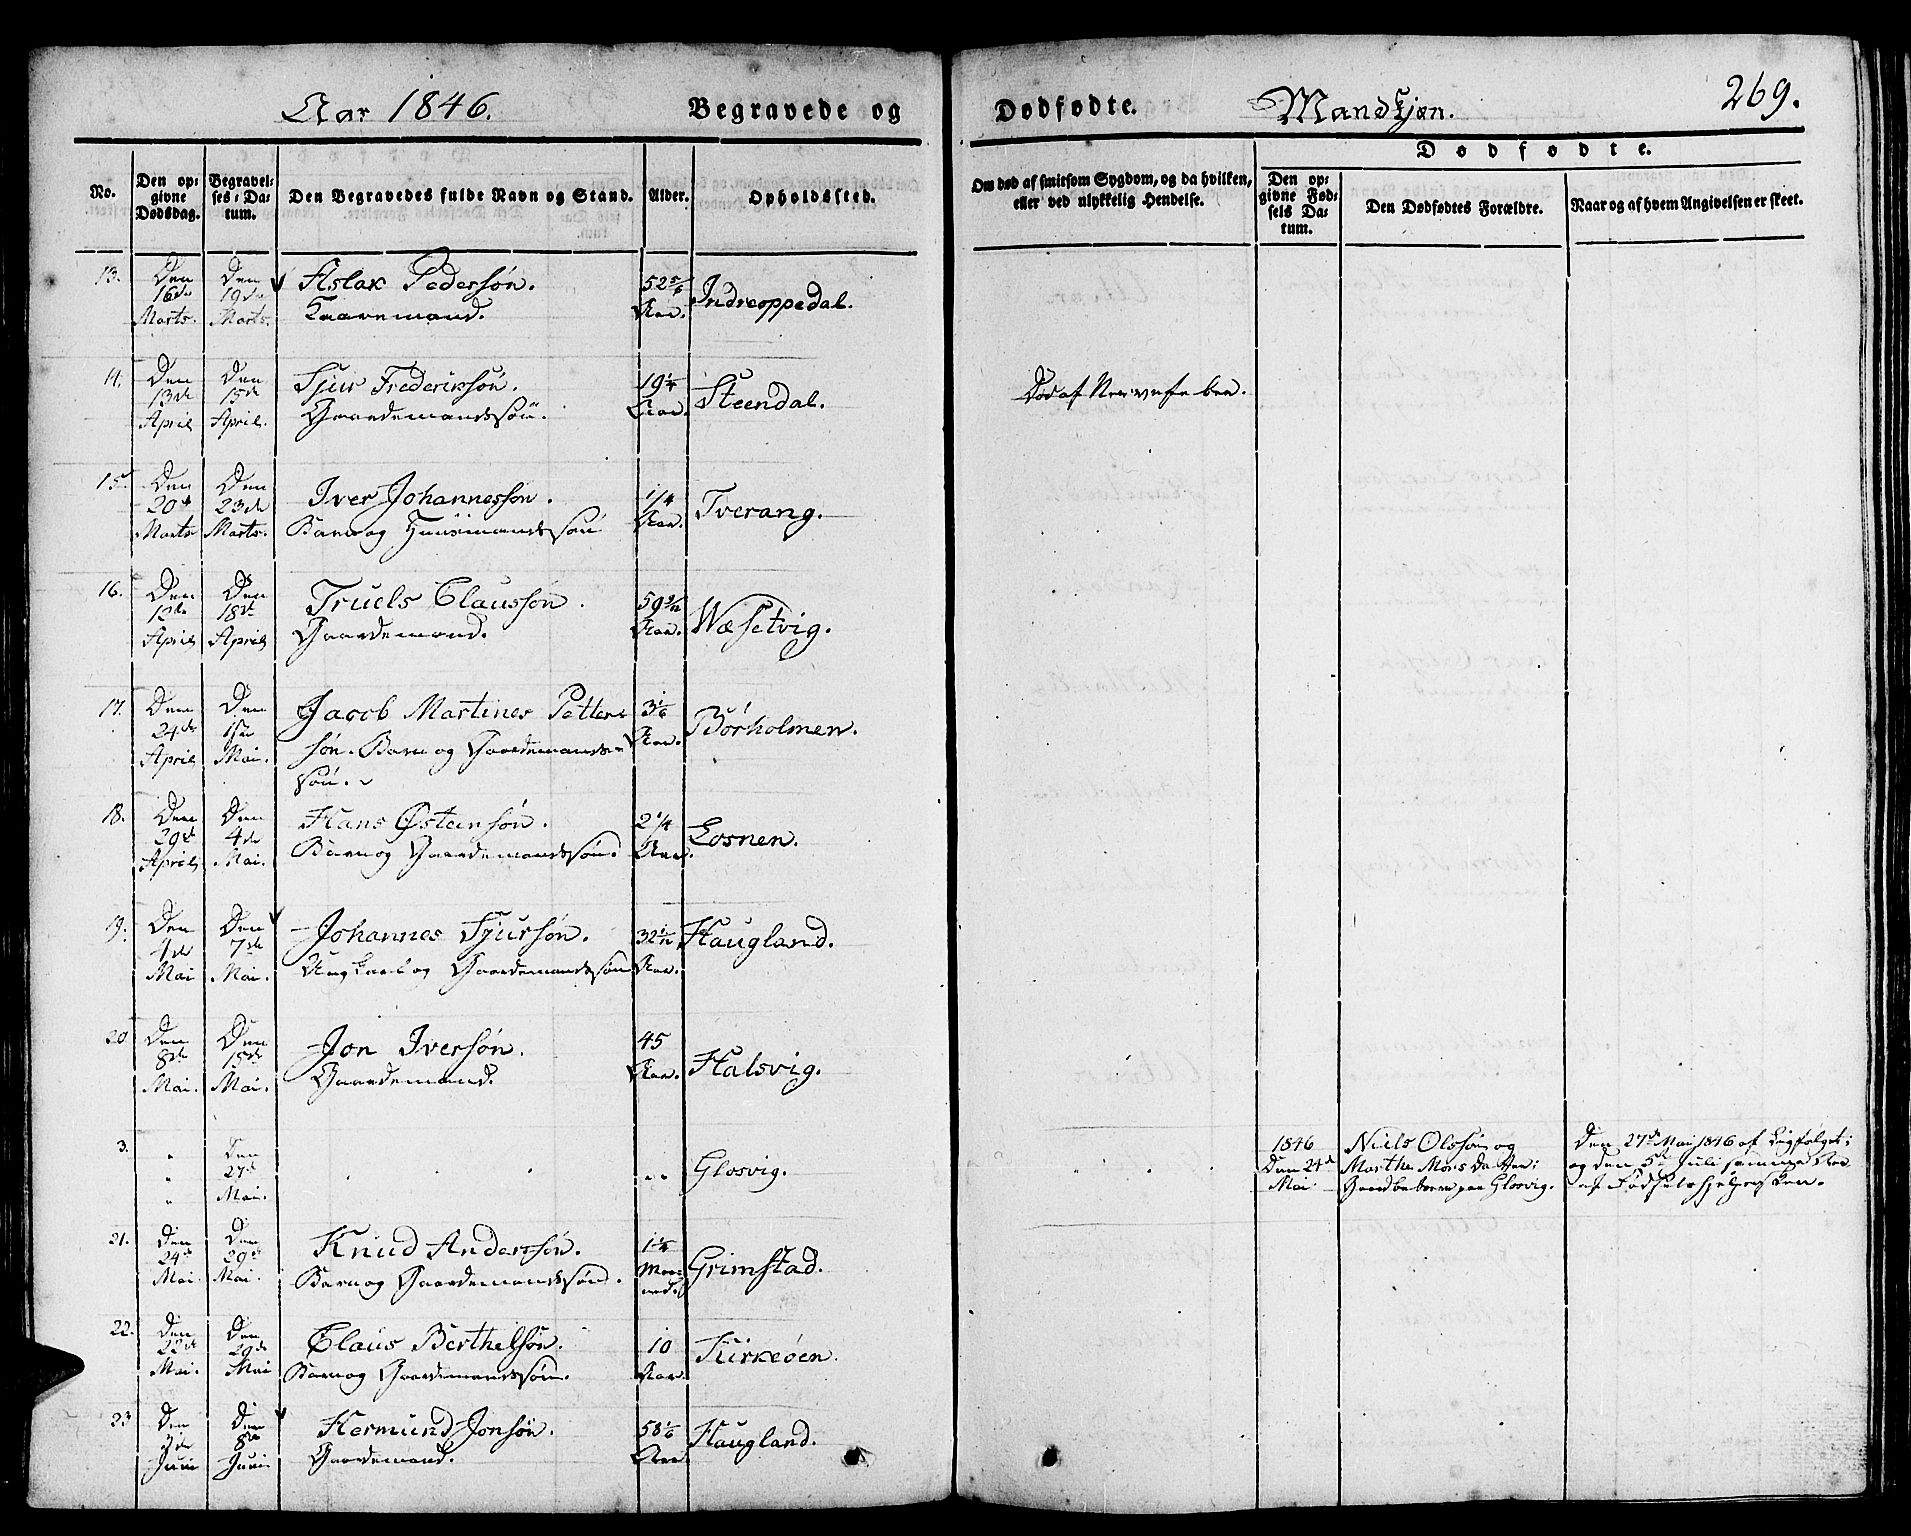 Aar 1846. Begravede og Dødfødte. Mandkjøn. 269.
Dødfødte.
No. | Den opgivne Dødsdag. | Begravelses-Datum. | Den Begravedes fulde Navn og Stand. | Alder. | Opholdssted. | Om død af smitsom Sygdom, og da hvilken, eller ved ulykkelig Hendelse. | Den opgivne Fødsels Datum. | Den Dødfødtes Forældre. | Naar og af hvem Angivelsen er skeet.
13. Den Den Aslak Pedersøn. 52 5/6 Indreoppedal.
16de 19de Kaaremand. Aar.
Marts. Marts.
14. Den Den Sjur Frederiksøn. 19 1/4 Steendal. Død af Nervefeber.
13de 15de Gaardemandssøn. Aar.
April April.
15. Den Den Iver Johannessøn. 1/4 Tverang.
20de 23de Barn og Huusmandssøn Aar.
Marts Marts.
16. Den Den Truels Claussøn. 59 Wæsetvig.
12te 18de Gaardemand. Aar.
April April
17. Den Den Jacob Martines Petter- 3 1/6 Børholmen.
24de 1ste søn. Barn og Gaardemands- Aar.
April Mai. søn.
18. Den Den Hans Østensøn. 2 1/4 Losnen.
29de 4de Barn og Gaardemandssøn. Aar.
April Mai.
19. Den Den Johannes Sjursøn. 32 1/12 Haugland.
4de 7de Ungkarl og Gaardemandssøn Aar.
Mai Mai.
20 Den Den Jon Iversøn. 45 Halsvig.
8de 15de Gaardemand. Aar.
Mai. Mai.
3. " Den " Glosvig. 1846 Niels Olssøn og Den 27de Mai 1846 af Liigfølget;
" 27de Den 24de Marthe Monsdatter; og den 5te Juli samme Aar
" Mai. Mai. Gaardbeboere paa Glosvig. af Fødselshjelpersken.
21. Den Den Knud Anderssøn. 1 1/4 Grimstad.
24de 29de Barn og Gaardemandssøn. Maa-
Mai. Mai. ned.
22. Den Den Claus Berthelsøn. 10 Kirkeøen.
22de 29de Barn og Gaardemandssøn. Aar.
Mai. Mai
23 Den Den Hermund Jonsøn. 58 1/6 Haugland.
8de Gaardemand. Aar
Juni Juni